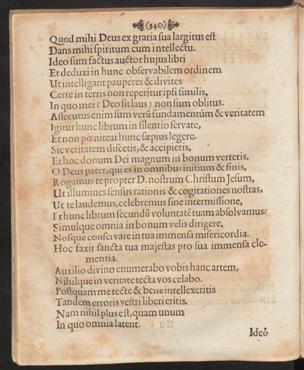 (340)
Quod mihi Deus ex gratia sua largitus est
Dans mihi spiritum cum intellectu.
Ideo sum factus auctor hujus libri
Et deduxi in hunc observabilem ordinem
Ut intelligant pauperes & divites
Certe in terris non reperitur ipsi similis,
In quo mei (Deo sit laus) non sum oblitus.
Assecutus enim sum verũ fundamentũm & veritatem
Igitur hunc librum in silentio servate,
Et non pœniteat hunc sæpius legere.
Sic veritatem discetis, & accipietis,
Et hoc donum Dei magnum in bonum vertetis.
O Deus pater, qui es in omnibus initium & finis,
Rogamus te propter D. nostrum Christum Jesum,
Ut illumines sensus rationis & cogitationes nostras,
Ut te laudemus, celebremus sine intermissione,
Et hunc librum secundũ voluntatẽ tuam absolvamus:
Simulque omnia in bonum velis dirigere,
Nosque conservare in tua immensa misericordia.
Hoc faxit sancta tua majestas pro sua immensa cle-
mentia.
Auxilio divino enumerabo vobis hanc artem,
Nihilque in veritate tecta vos celabo.
Postquam me recte & bene intellexeritis
Tandem erroris vestri liberi eritis.
Nam nihil plus est, quam unum
In quo omnia latent.
Ideò